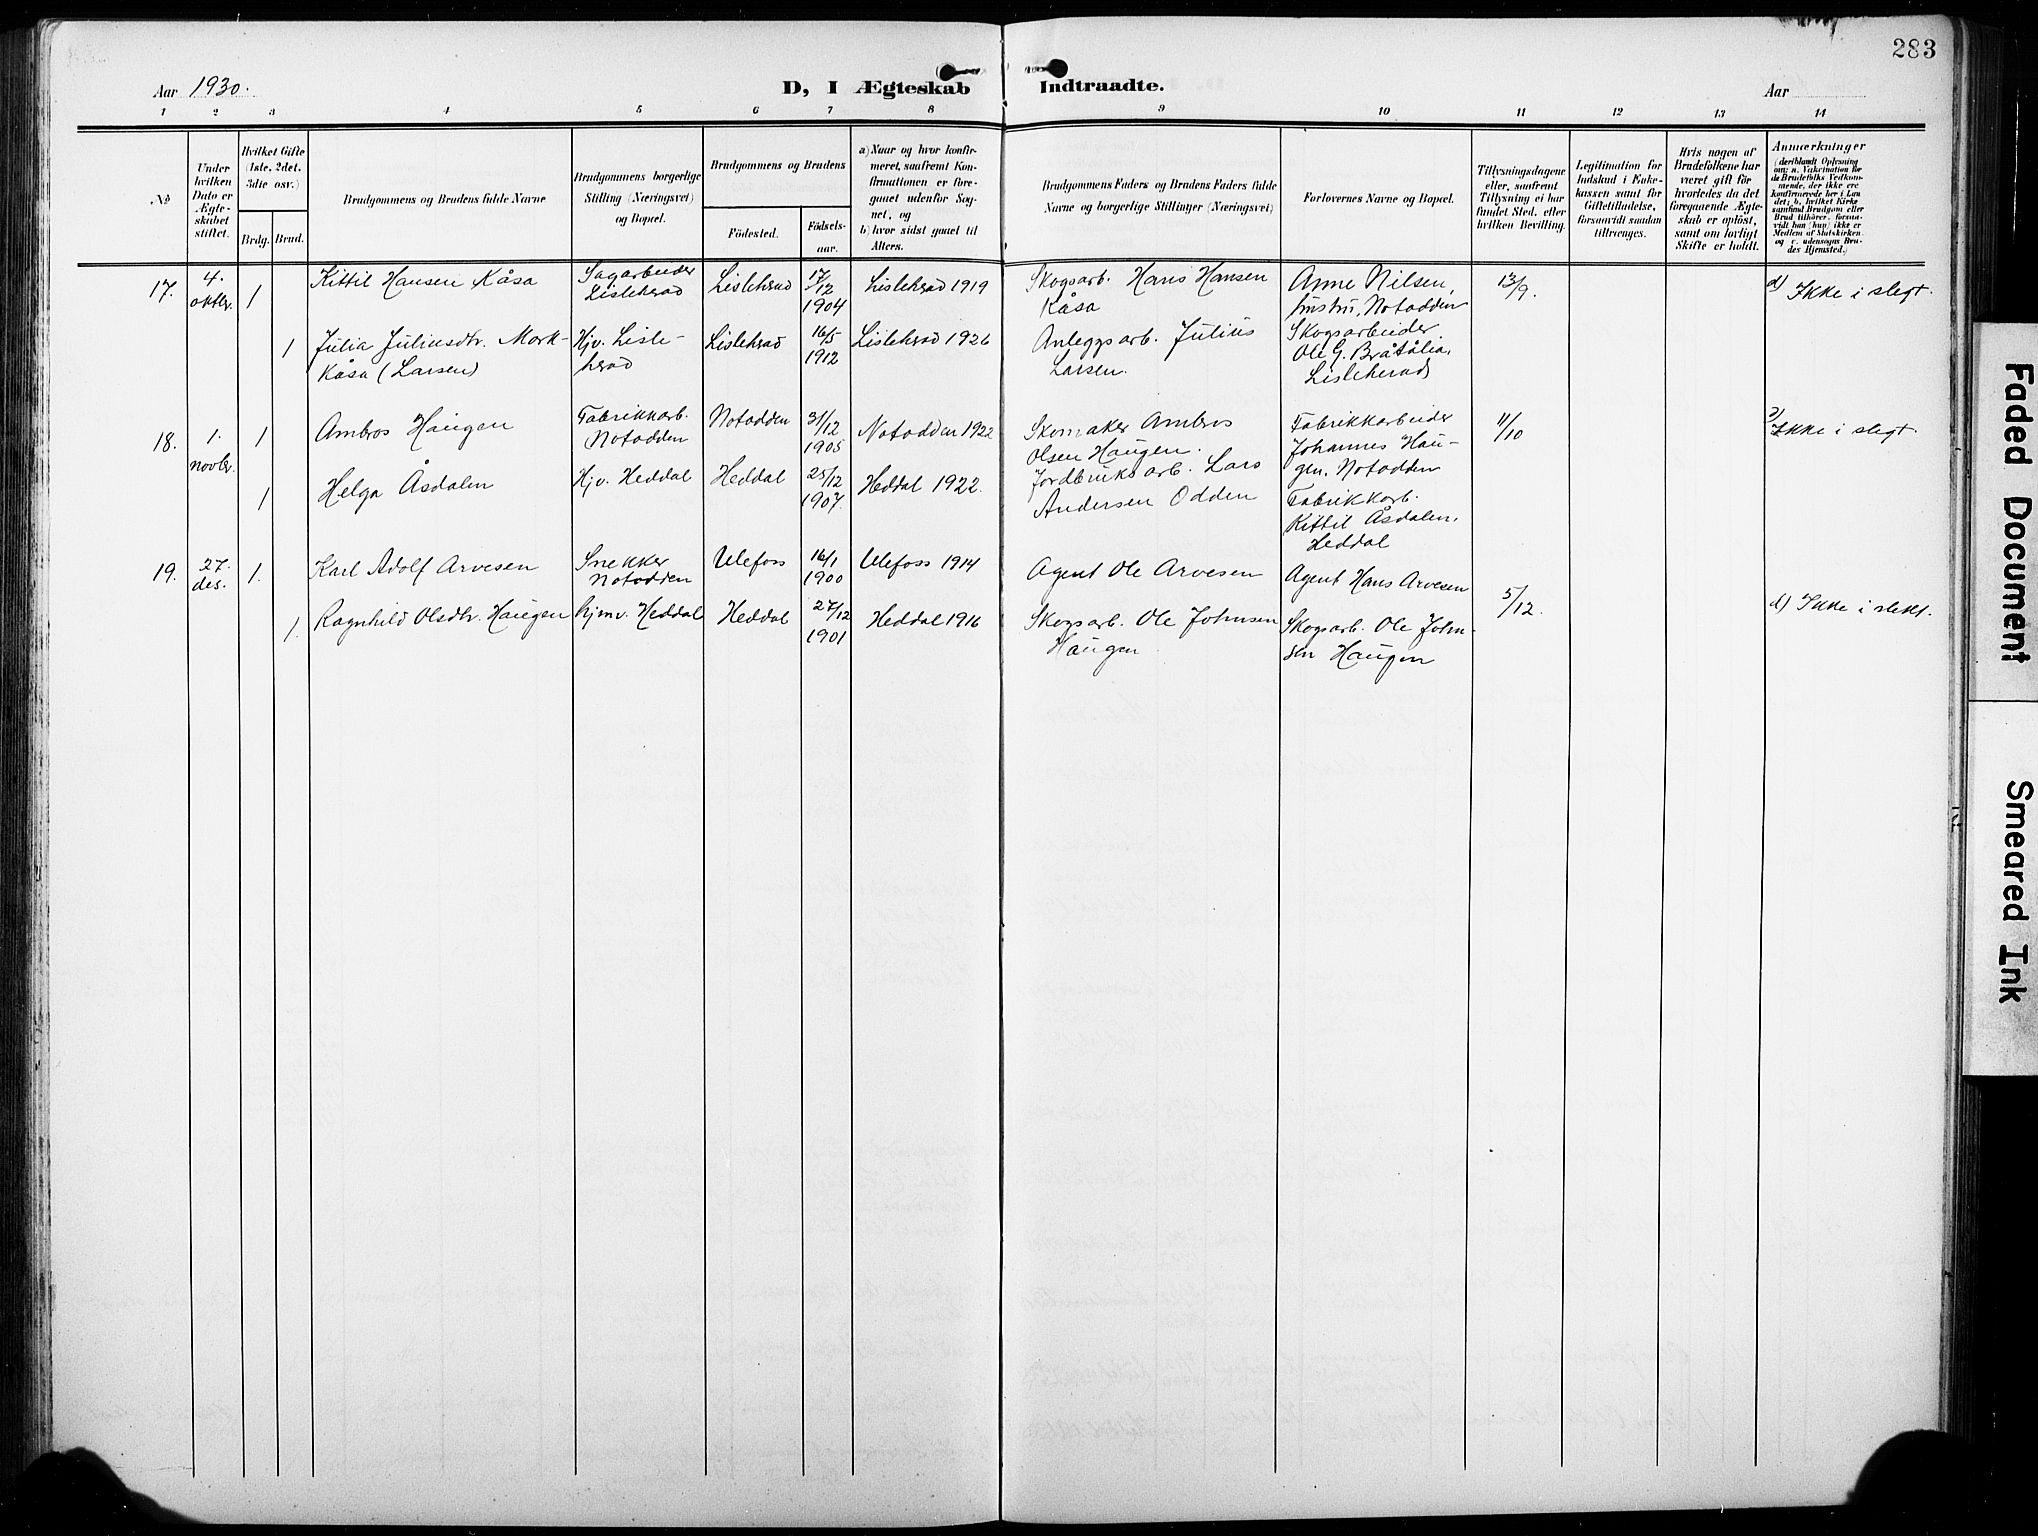 283
Aar 1930.
D, I Ægteskab Indtraadte.
Aar
1 2 3 4 5 6 7 8 9 10 11 12 13 14
№
Under hvilken Dato er Ægteskabet stiftet.
Hvilket Gifte (1ste, 2det, 3die osv.)
Brdg. Brud.
Brudgommens og Brudens fulde Navne
Brudgommens borgerlige Stilling (Næringsvei) og Bopæl.
Brudgommens og Brudens
Födested.
Födselsaar.
a) Naar og hvor konfirmeret, saafremt Konfirmationen er foregaaet udenfor Sognet, og
b) hvor sidst gaaet til Alters.
Brudgommens Faders og Brudens Faders fulde Navne og borgerlige Stillinger (Næringsvei)
Forlovernes Navne og Bopæl.
Tillysningsdagene eller, saafremt Tillysning ei har fundet Sted, efter hvilken Bevilling.
Legitimation for Indskud i Enkekassen samt for Giftetilladelse, forsaavidt saadan tiltrænges.
Hvis nogen af Brudefolkene har været gift för, hvorledes da det foregaaende Ægteskab er oplöst, samt om lovligt Skifte er holdt.
Anmærkninger
(deriblandt Oplysning om: a. Vakcination for de Brudefolks Vedkommende, der ikke ere konfirmerede her i Landet; b. hvilket Kirkesamfund Brudgom eller Brud tilhörer, forsaavidt han (hun) ikke er Medlem af Statskirken og c. udensogns Brudes Hjemsted.)
17. 4. oktbr. 1 Kittil Hansen Kåsa Sagarbeider Lisleherad Lisleherad 17/12 1904 Lisleherad 1919 Skogsarb. Hans Hansen Kåsa Anne Nilsen, hustru, Notodden 13/9. d) Ikke i slegt.
1 Julia Juliusdtr. Mork-Kåsa (Larsen) Hjv. Lisleherad Lisleherad 16/5 1912 Lisleherad 1926 Anleggsarb. Julius Larsen. Skogsarbeider Ole G. Bråtålia, Lisleherad
18. 1. novbr. 1 Ambros Haugen Fabrikkarb. Notodden Notodden 31/12 1905 Notodden 1922 Skomaker Ambros Olsen Haugen. Fabrikkarbeider Johannes Haugen, Notodden 11/10 d) Ikke i slegt.
1 Helga Åsdalen Hjv. Heddal Heddal 25/12 1907. Heddal 1922. Jordbruksarb. Lars Andersen Odden Fabrikkarb. Kittil Åsdalen, Heddal
19. 27. des. 1. Karl Adolf Arvesen Snekker Notodden Ulefoss 16/1 1900 Ulefoss 1914 Agent Ole Arvesen Agent Hans Arvesen 5/12. d) Ikke i slekt.
1. Ragnhild Olsdtr. Haugen hjmv. Heddal Heddal 27/12 1901 Heddal 1916 Skogsarb. Ole Johnsen Haugen Skogsarb. Ole Johnsen Haugen
Faded Document
Smeared Ink